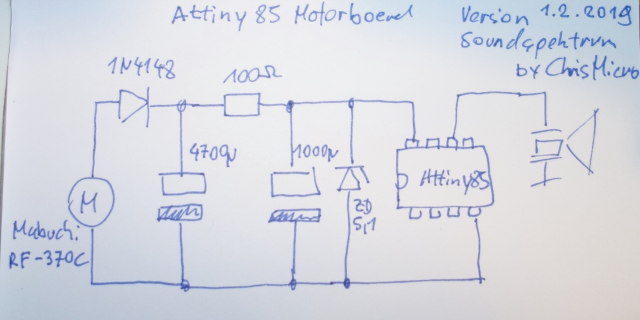 Attiny 85 Motorboard
Version 1.2.2019
Soundspektrum
by ChrisMicro
1N4148
100Ω
4700µ
1000µ
Attiny85
ZD
5,1
M
Mabuchi
RF-370C